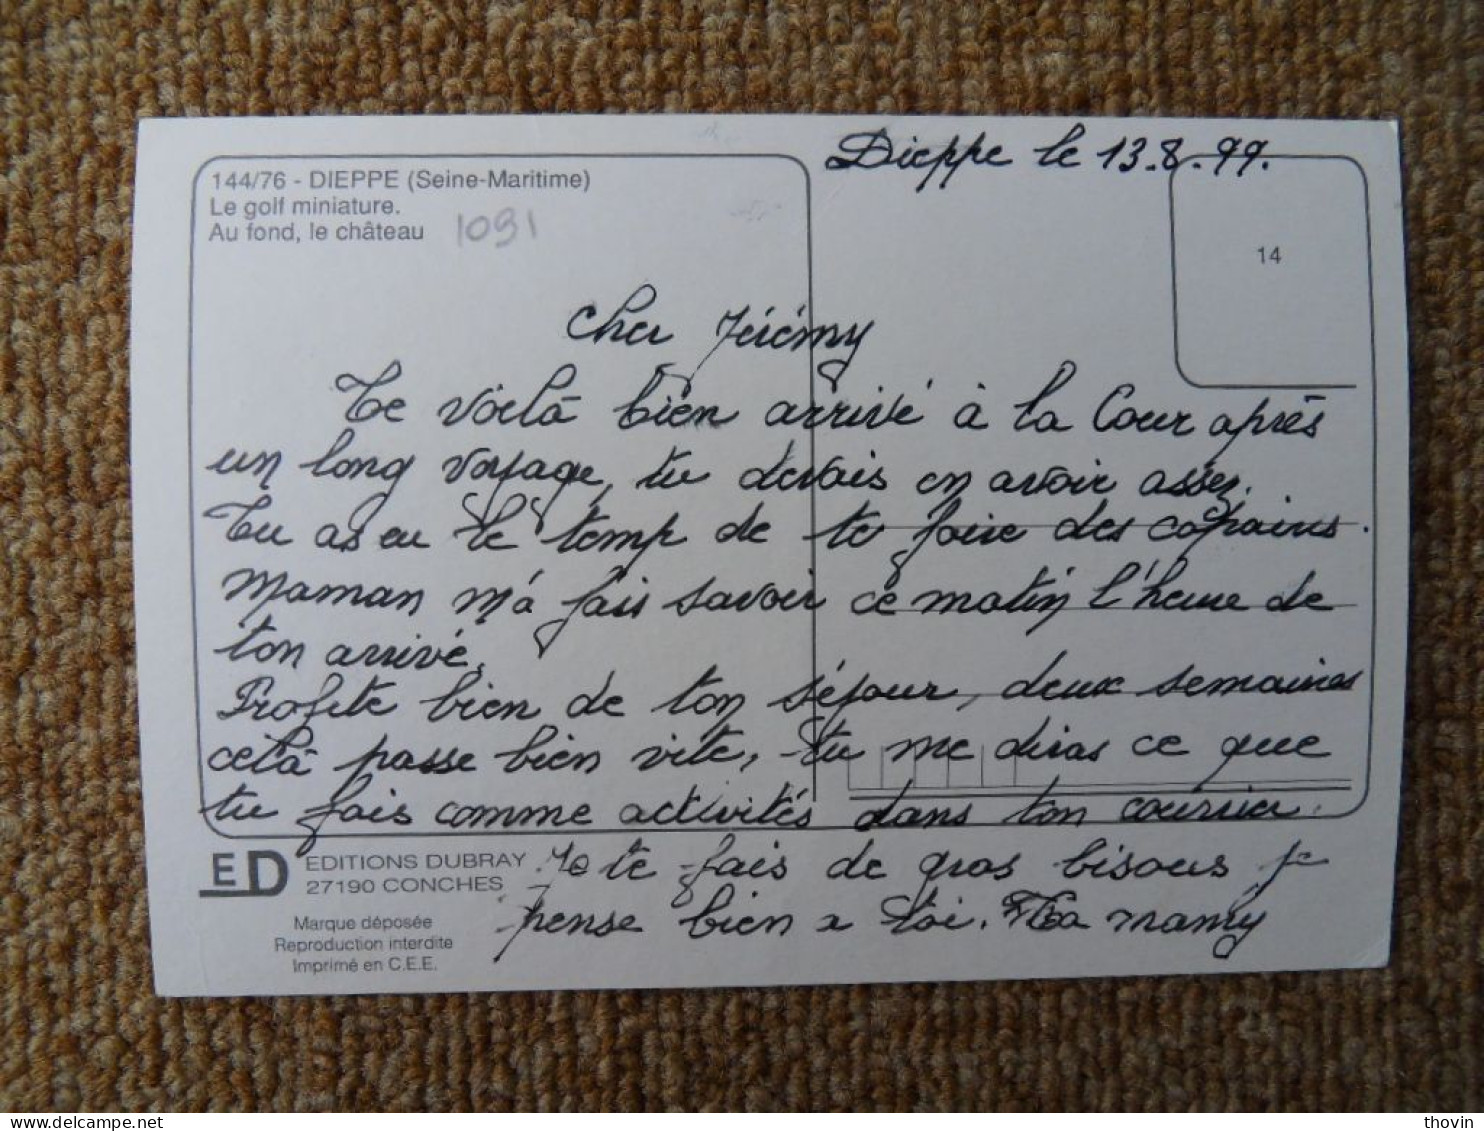 Dieppe le 13.8.99.
144/76 - DIEPPE (Seine-Maritime)
Le golf miniature.
Au fond, le château
1091
14
Cher Jérémy
Te voilà bien arrivé à la Cour après
un long voyage, tu devais en avoir assez.
Tu as eu le temp de te faire des copains.
Maman m'a fais savoir ce matin l'heure de
ton arrivé.
Profite bien de ton séjour, deux semaines
celà passe bien vite, tu me diras ce que
tu fais comme activités dans ton courrier.
Je te fais de gros bisous, je
pense bien a toi. Ta mamy
ED
EDITIONS DUBRAY
27190 CONCHES
Marque déposée
Reproduction interdite
Imprimé en C.E.E.
www.delcampe.net
thovin